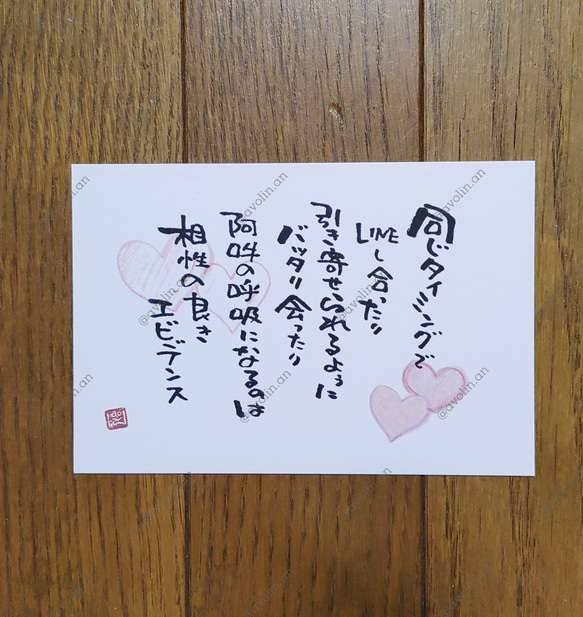 同じタイミングで
LINEし合ったり
引き寄せられるように
バッタリ会ったり
阿吽の呼吸になるのは
相性の良き
エビデンス
@avolin.an